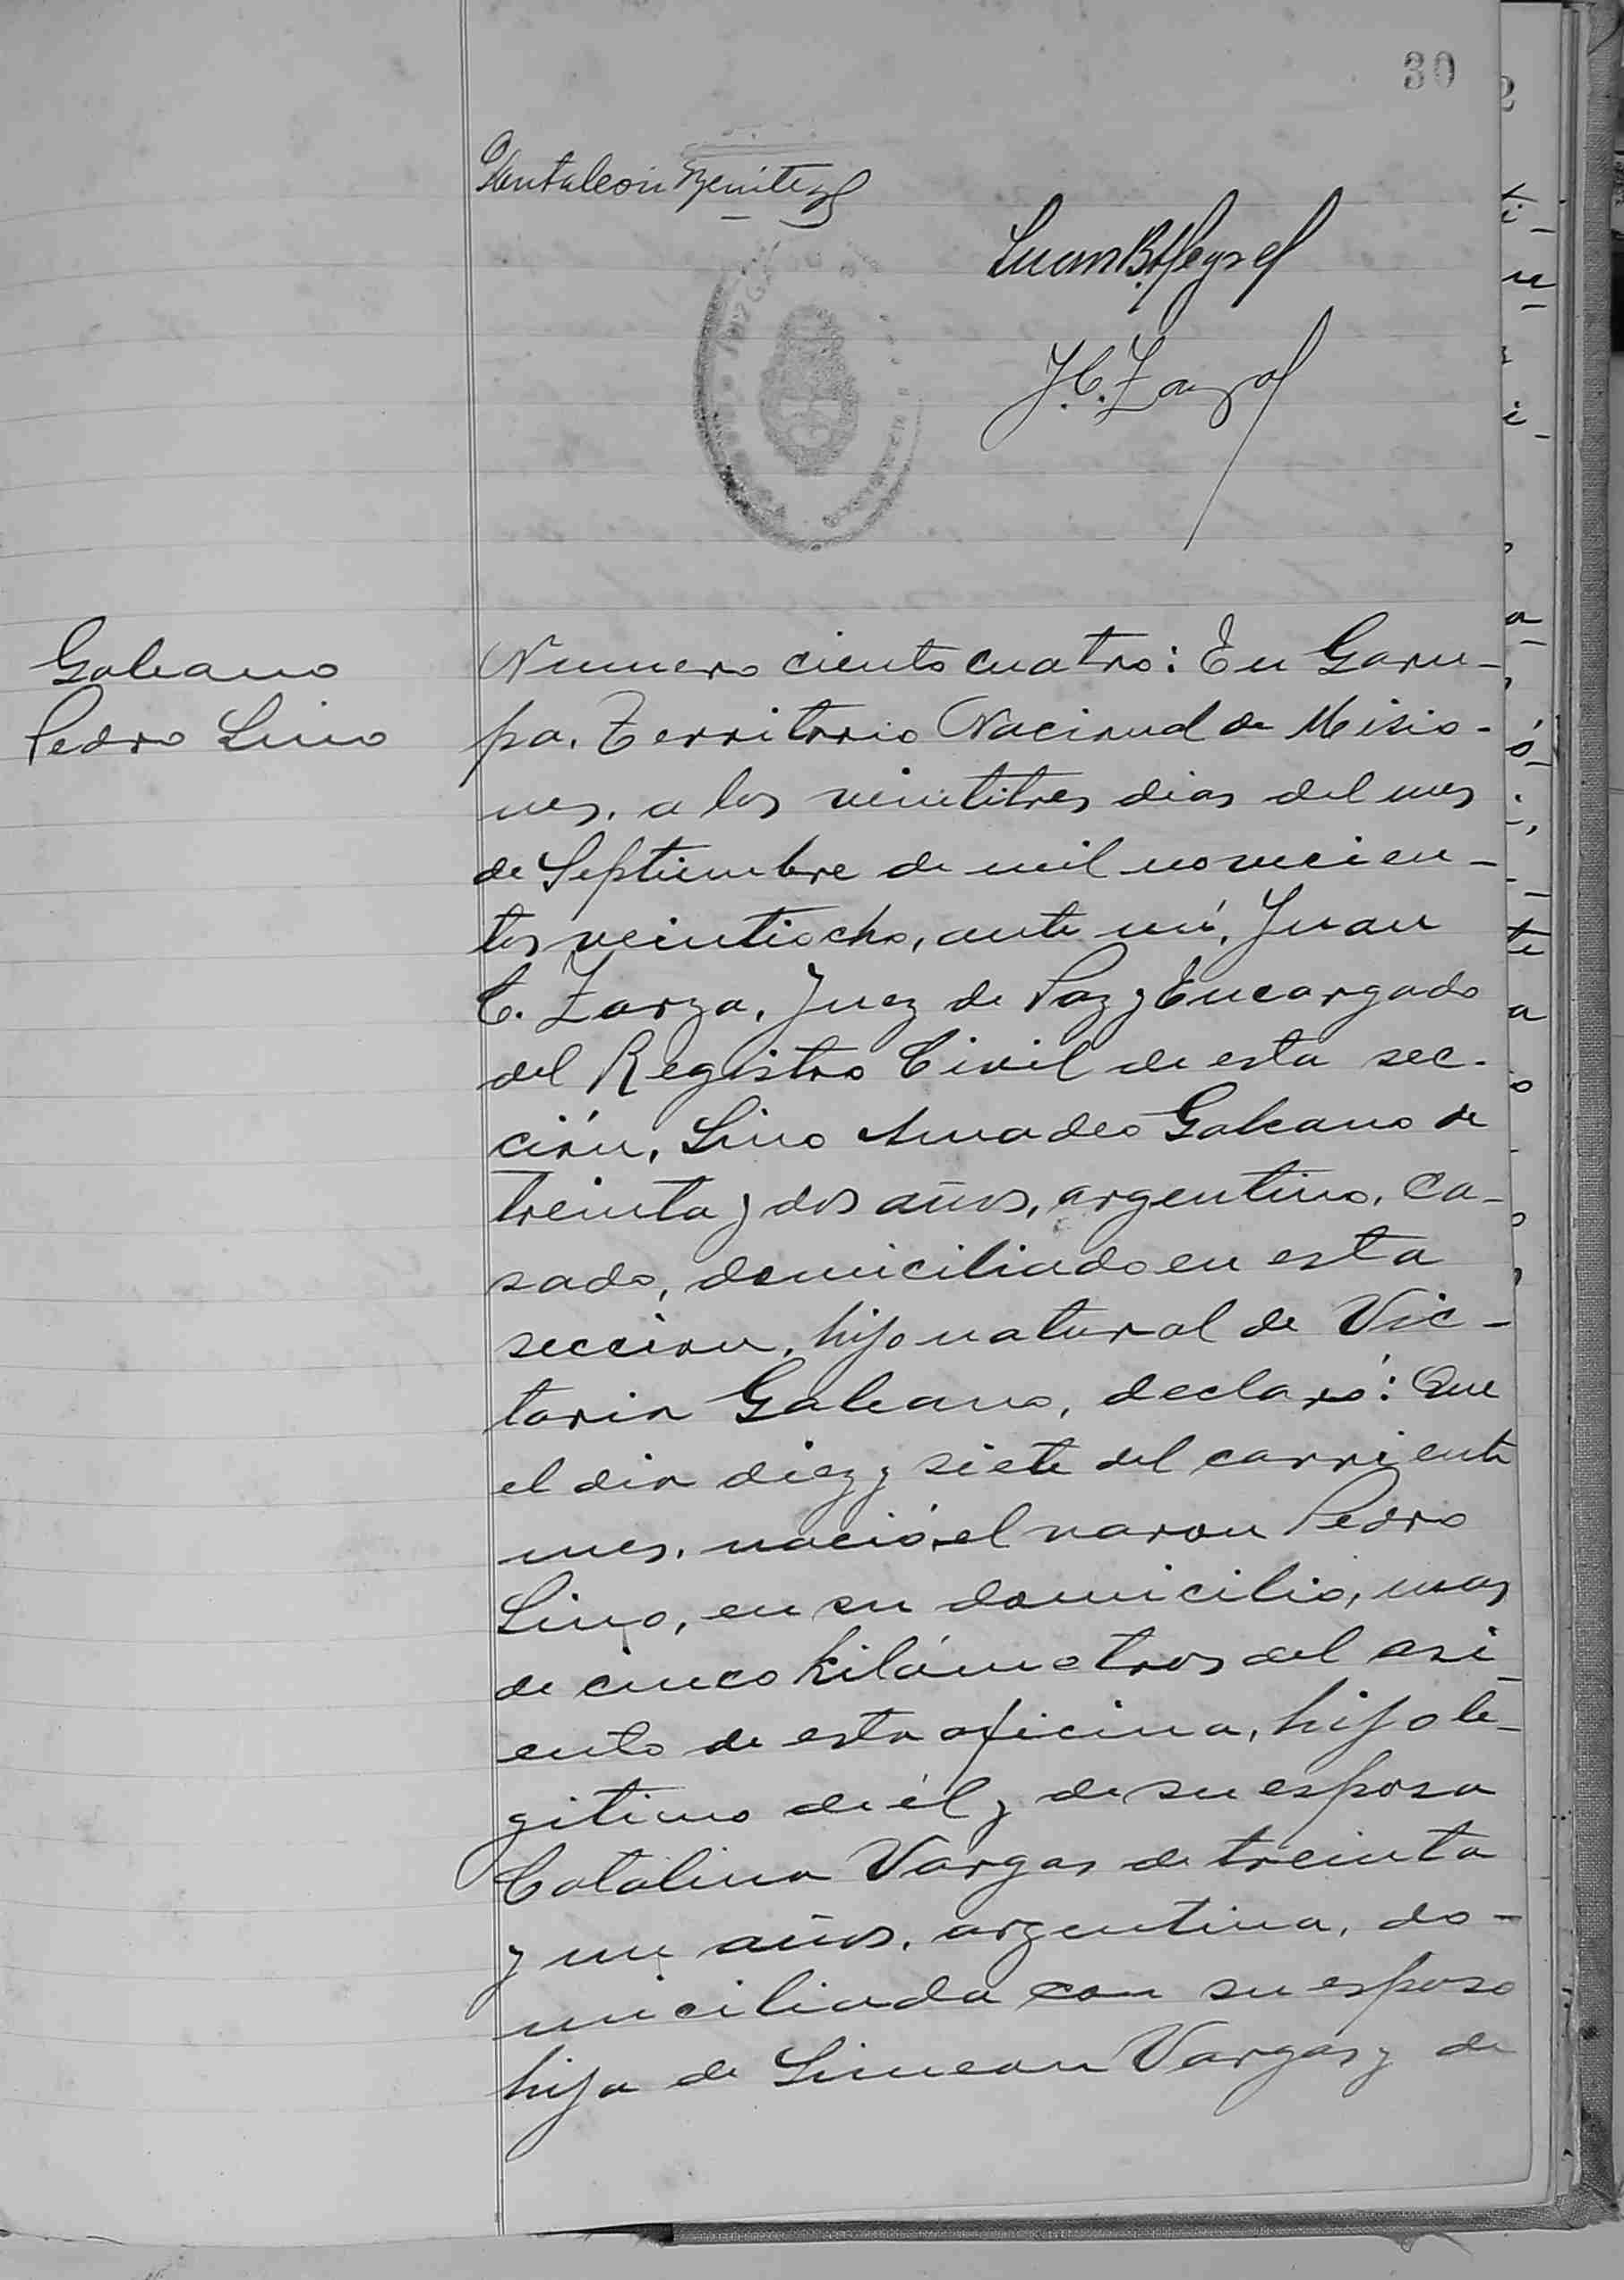 30
Pantaleón Benitez
Juan B.
J. C. Zarza
Galeano
Pedro Lino
Numero ciento cuatro: En Garu-
pa, Territorio Nacional de Misio-
nes, a los veintitres dias del mes
de Septiembre de mil novecien-
tos veintiocho, ante mí, Juan
C. Zarza, Juez de Paz y Encargado
del Registro Civil de esta sec-
ción, Lino Amadeo Galeano de
treinta y dos años, argentino, ca-
sado, domiciliado en esta
seccion, hijo natural de Vic-
toria Galeano, declaró: Que
el dia diez y siete del corriente
mes, nació el varon Pedro
Lino, en su domicilio, mas
de cinco kilómetros del asi-
ento de esta oficina, hijo le-
gitimo de él y de su esposa
Catalina Vargas de treinta
y un años, argentina, do-
miciliada con su esposo
hija de Simeon Vargas y de